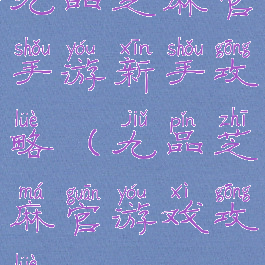 九品芝麻官
shǒu yóu xīn shǒu gōng
手游新手攻
lüè jiǔ pǐn zhī
略（九品芝
má guān yóu xì gōng
麻官游戏攻
lüè